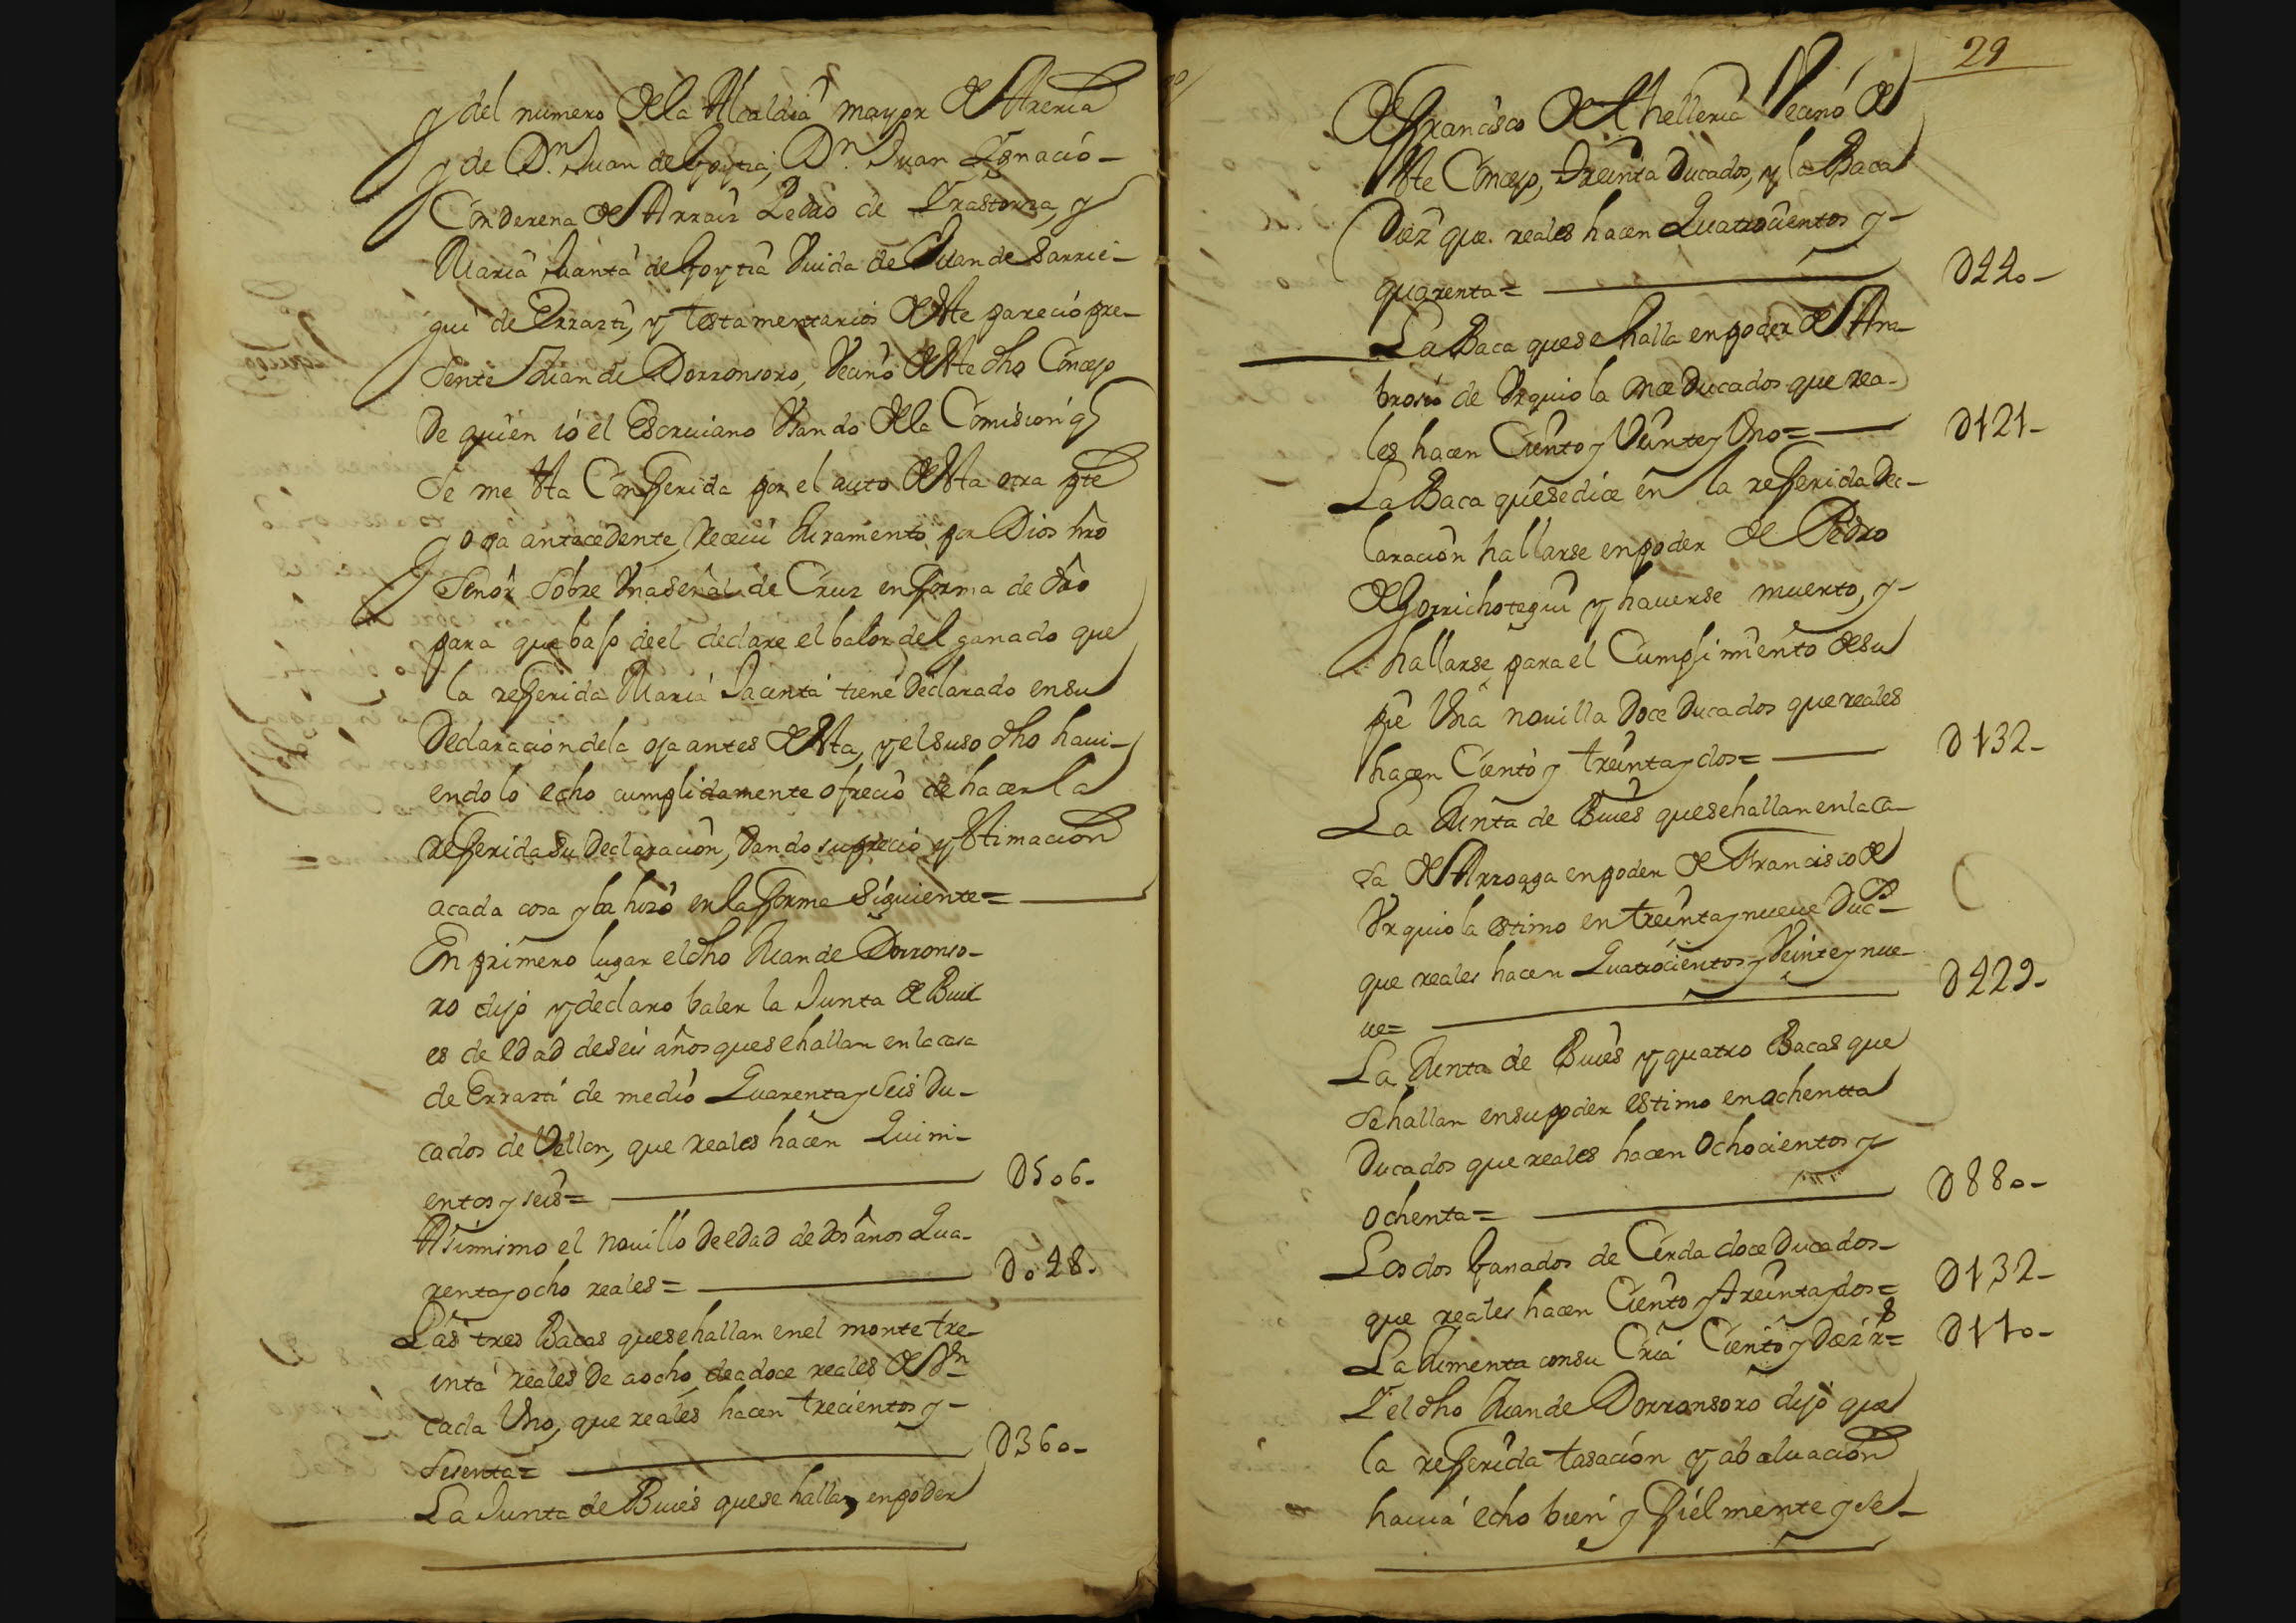 y del numero de la Alcaldia mayor de Areria
y de Dn. Juan de Goytia, Dn. Juan Ygnacio
Conderena de Arraiz Pedro de Yrastorza, y
Maria Jacinta de Goytia Viuda de Juan de Sarrie-
gui de Errazti, y testamentarios de este parecio pre-
sente Juan de Dorronsoro, Vecino de este dho Concejo
De quien io el Escriuano Usando de la Comision q
se me esta Conferida por el auto de esta otra pte
y oja antecedente, Receui Juramento por Dios nro
Señor sobre Una señal de Cruz en forma de dro
para que bajo de el declare el balor del ganado que
la referida Maria Jacinta tiene Declarado en su
Declaracion de la oja antes de esta, y el suso dho haui-
endolo echo cumplidamente ofrecio de hacer la
referida su Declaracion, Dando su precio y estimacion
a cada cosa y la hizo en la forma siguiente=
En primero lugar el dho Juan de Dorronso-
ro dijo y declaro baler la Junta de Buei
es de edad de seis años que se hallan en la casa
de Errazti de medio Quarenta y seis Du-
cados de Vellon, que reales hacen Quini-
entos y seis= D506-
Asimmimo el nouillo De edad de dos años Qua-
renta y ocho reales= D048.
Las tres Bacas que se hallan en el monte tre-
inta reales de a ocho, de a doce reales de Vn
cada Uno, que reales hacen trecientos y
sesenta= D360-
La Junta de Bueies que se hallan en poder
29
de Francisco de Athelleria Vecino de
este Concejo, treinta Ducados, y la Baca
Diez que reales hacen Quatrocientos y
quarenta= D440-
La Baca que se halla en poder de Am-
brosio de Urquiola once Ducados que rea-
les hacen Ciento y Veinte y Uno= D121-
La Baca que se dice en la referida Dec-
laracion hallarse en poder de Pedro
de Gorrichotegui y hauerse muerto, y
hallarse para el Cumplimiento de su
pie Una nouilla Doce Ducados que reales
hacen Ciento y treinta y dos= D132-
La Junta de Bueies que se hallan en la ca-
sa de Arroaga en poder de Francisco de
Urquiola estimo en treinta y nueue Ducs
que reales hacen Quatrocientos y Veinte y nue-
ue= D429-
La Junta de Bueies y quatro Bacas que
se hallan en su poder estimo en ochentta
Ducados que reales hacen Ochocientos y
Ochenta= D880-
Los dos Ganados de Cerda doce Ducados-
que reales hacen Ciento y treinta y dos= D132-
La Jumenta con su Cria Ciento y Diez rs= D110-
Y el dho Juan de Dorronsoro dijo que
la referida tasacion y abaluacion
hauia echo bien y fielmente y se